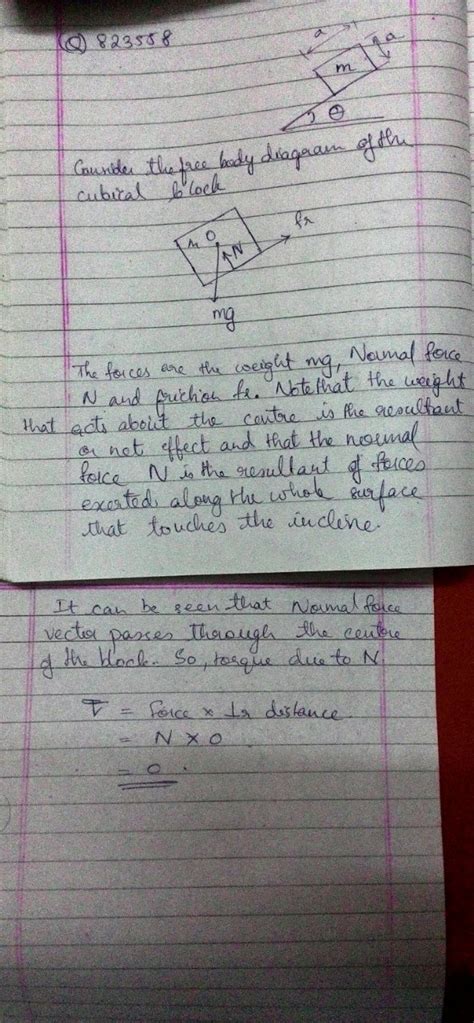 Q 823558
a
a
m
θ
Consider the free body diagram of the
cubical block
m O
N
fr
mg
The forces are the weight mg, Normal force
N and friction fr. Note that the weight
that acts about the centre is the resultant
or net effect and that the normal
force N is the resultant of forces
exerted along the whole surface
that touches the incline.
It can be seen that Normal force
vector passes through the centre
of the block. So, torque due to N
τ = force × ⊥r distance
= N × 0
= 0.